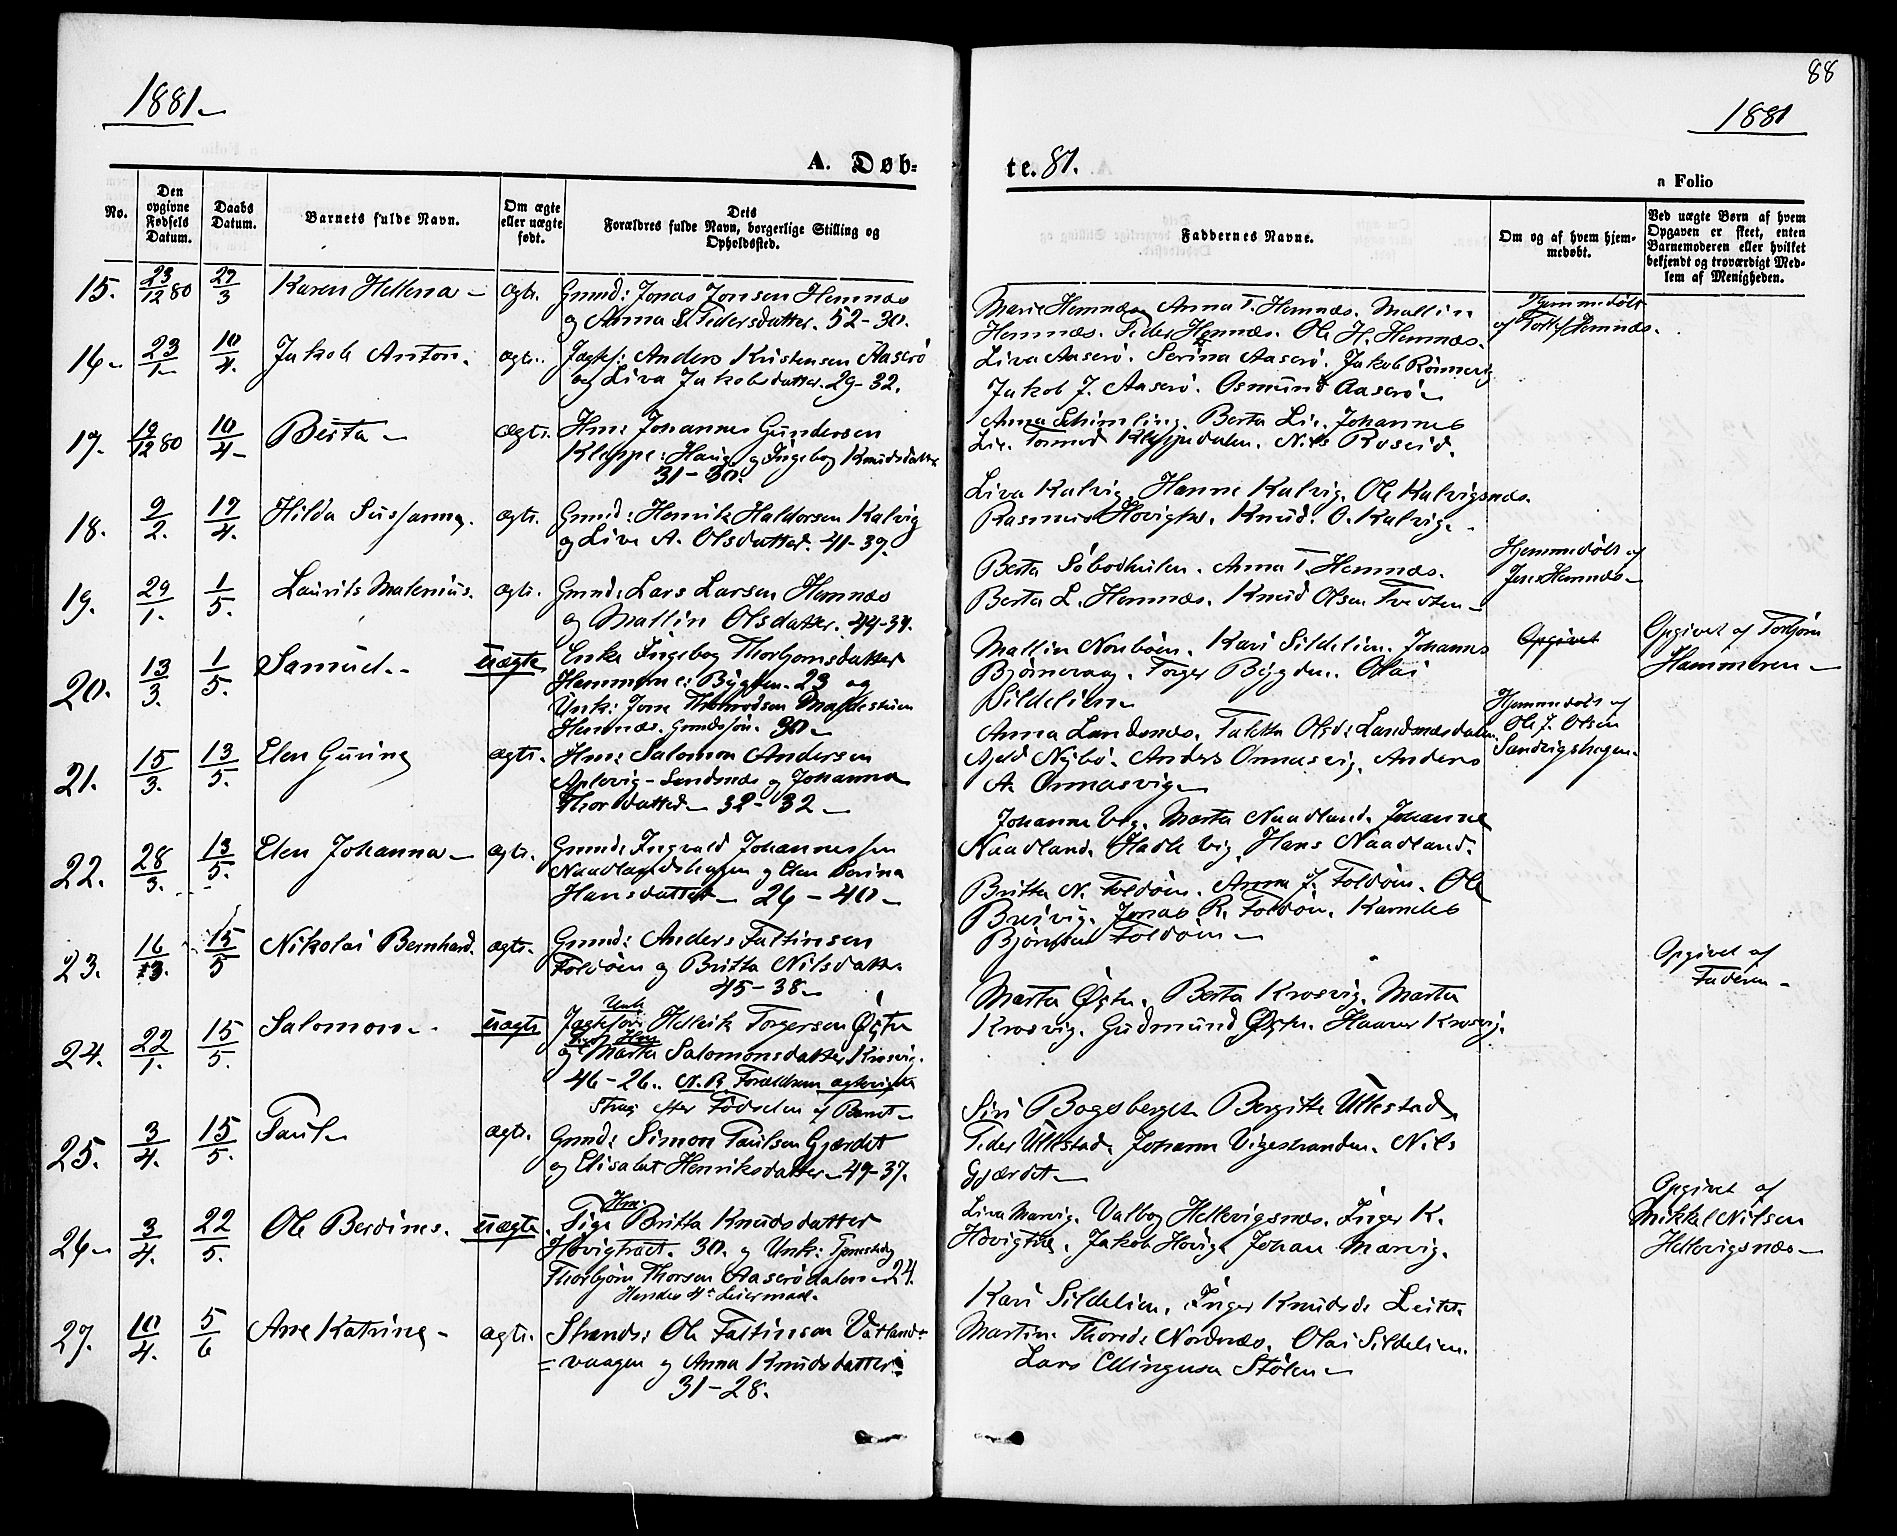 88
1881
1881
A. Døb-
te. 81.
n Folio
No.
Den opgivne Fødsels Datum.
Daabs Datum.
Barnets fulde Navn.
Om ægte eller uægte født.
Dets Forældres fulde Navn, borgerlige Stilling og Opholdssted.
Faddernes Navne.
Om og af hvem hjemmedøbt.
Ved uægte Børn af hvem Opgaven er skeet, enten Barnemoderen eller hvilket bekjendt og troværdigt Medlem af Menigheden.
15. 23/12 80 27/3 Karen Hellena ægte.
Gmnd: Jonas Jonsen Hemnæs
og Anna S. Pedersdatter. 52-30.
Marie Hemnæs Anna T. Hemnæs. Mallin
Hemnæs. Peder Hemnæs. Ole H. Hemnæs.
Hjemmedøbt
af Hemnæs.
16 23/1 10/4. Jakob Anton. ægte.
Anders Kristensen Aaserö
og Liva Jakobsdatter. 29-32.
Liva Aaserö. Serina Aaserö. Jakob Rönnevig
Jakob J. Aaserö. Osmund Aaserö
17. 12/12 80 10/4 Berta ægte.
Hm: Johannes Gundersen
Kleppe: Haug og Ingebog Knudsdatter
31-30.
Anna Schimling. Berta Lie. Johannes
Lie. Tormod Kleppedalen. Nils Roseid.
18. 9/2. 17/4. Hilda Susanna. ægte.
Gmnd: Henrik Haldorsen Kalvig
og Live A. Olsdatter. 41-37.
Liva Kalvig. Hanne Kalvig. Ole Kalvigsnæs.
Rasmus Hovigtr. Knud. O. Kalvig.
19. 29/1. 1/5. Laurits Malenius. ægte.
Gmnd: Lars Larsen Hemnæs
og Mallin Olsdatter. 44-34.
Berta Anna T. Hemnæs.
Berta L. Hemnæs. Knud Olsen Tveten
Hjemmedøbt af
Jens Hemnæs
20. 13/3. 1/5. Samuel. uægte
Enke Ingebog Thorbjornsdatter
Hemmere: Bygden. 23 og
Unk: Jone
Hemnæs. Gmndssøn. 30
Mallin Nonboen. Kari Sildelien. Johannes
Bjørnevaag. Torger Bygden. Olai
Sildelien
Opgivet
Opgivet af Torbjørn
Hammeren
21. 15/3. 13/5. Elen Gurine ægte.
Hm: Salomon Andersen
Aplevig - Landsnæs og Johanna
Thorsdatter 32-32
Anna Landsnæs. Olsd: Landsnæsdalen.
Nybö. Anders Ommasvig. Anders
A. Ommasvig
Hjemmedøbt af
Ole J. Olsen
Sandvigshagen.
22. 28/3. 13/5. Elen Johanna ægte.
Gmnd: Ingvald Johannessen
Naadlandshagen og Elen Serina
Hansdatter 26-40
Johanne Vig. Marta Naadland. Johanne
Naadland. Hadle Vig. Hans Naadland.
23. 16/3. 15/5 Nikolai Bernhard. ægte.
Gmnd: Anders Faltinsen
Foldöen og Britta Nilsdatter
45-38
Britta N. Foldöen. Anna J. Foldöen. Ole
Breivig. Jonas R. Foldöen. Kornelus
Bjørnsen Foldöen
24. 22/1. 15/5. Salomon. uægte
Unk
Hellvik Torgersen Øgtn
og Marta Salomonsdatter Krosvig.
46-26. N.B. Forældrene ægteviede
strax efter Fødselen af Barnet
Marta Øgtn. Berta Krosvig. Marta
Krosvig. Gudmund Øgtn. Haavar Krosvig.
Opgivet af
Faderen
25. 3/4. 15/5. Paul ægte.
Gmnd: Simon Paulsen Gjærdet
og Elisabet Henriksdatter 49-37.
Siri Bogsberget. Bergitte Ullestad
Peder Ullestad. Johann Vigestranden. Nils
Gjærdet
26 3/4. 22/5. Ole Berdines. uægte
Hm:
Pige Britta Knudsdatter
Hovigtræet. 30. og Unk: Tjenestedr
Thorbjørn Thorsen Aaserödalen 24.
Hendes 4de Leiermaal.
Liva Marvig. Valbog Hellevigsnæs. Inger K.
Hovigtræ. Jakob Hovig. Johan Marvig.
Opgivet af
Mikkel Nilsen
Hellevigsnæs
27. 10/4. 5/6 Ane Katrine ægte.
Strands: Ole Faltinsen Vatlands
vaagen og Anna Knudsdatter
31-28.
Kari Sildelien. Inger Knudsd: Leite.
Martin Thorsd: Nordnæs. Olai Sildelien.
Lars Ellingsen Stölen